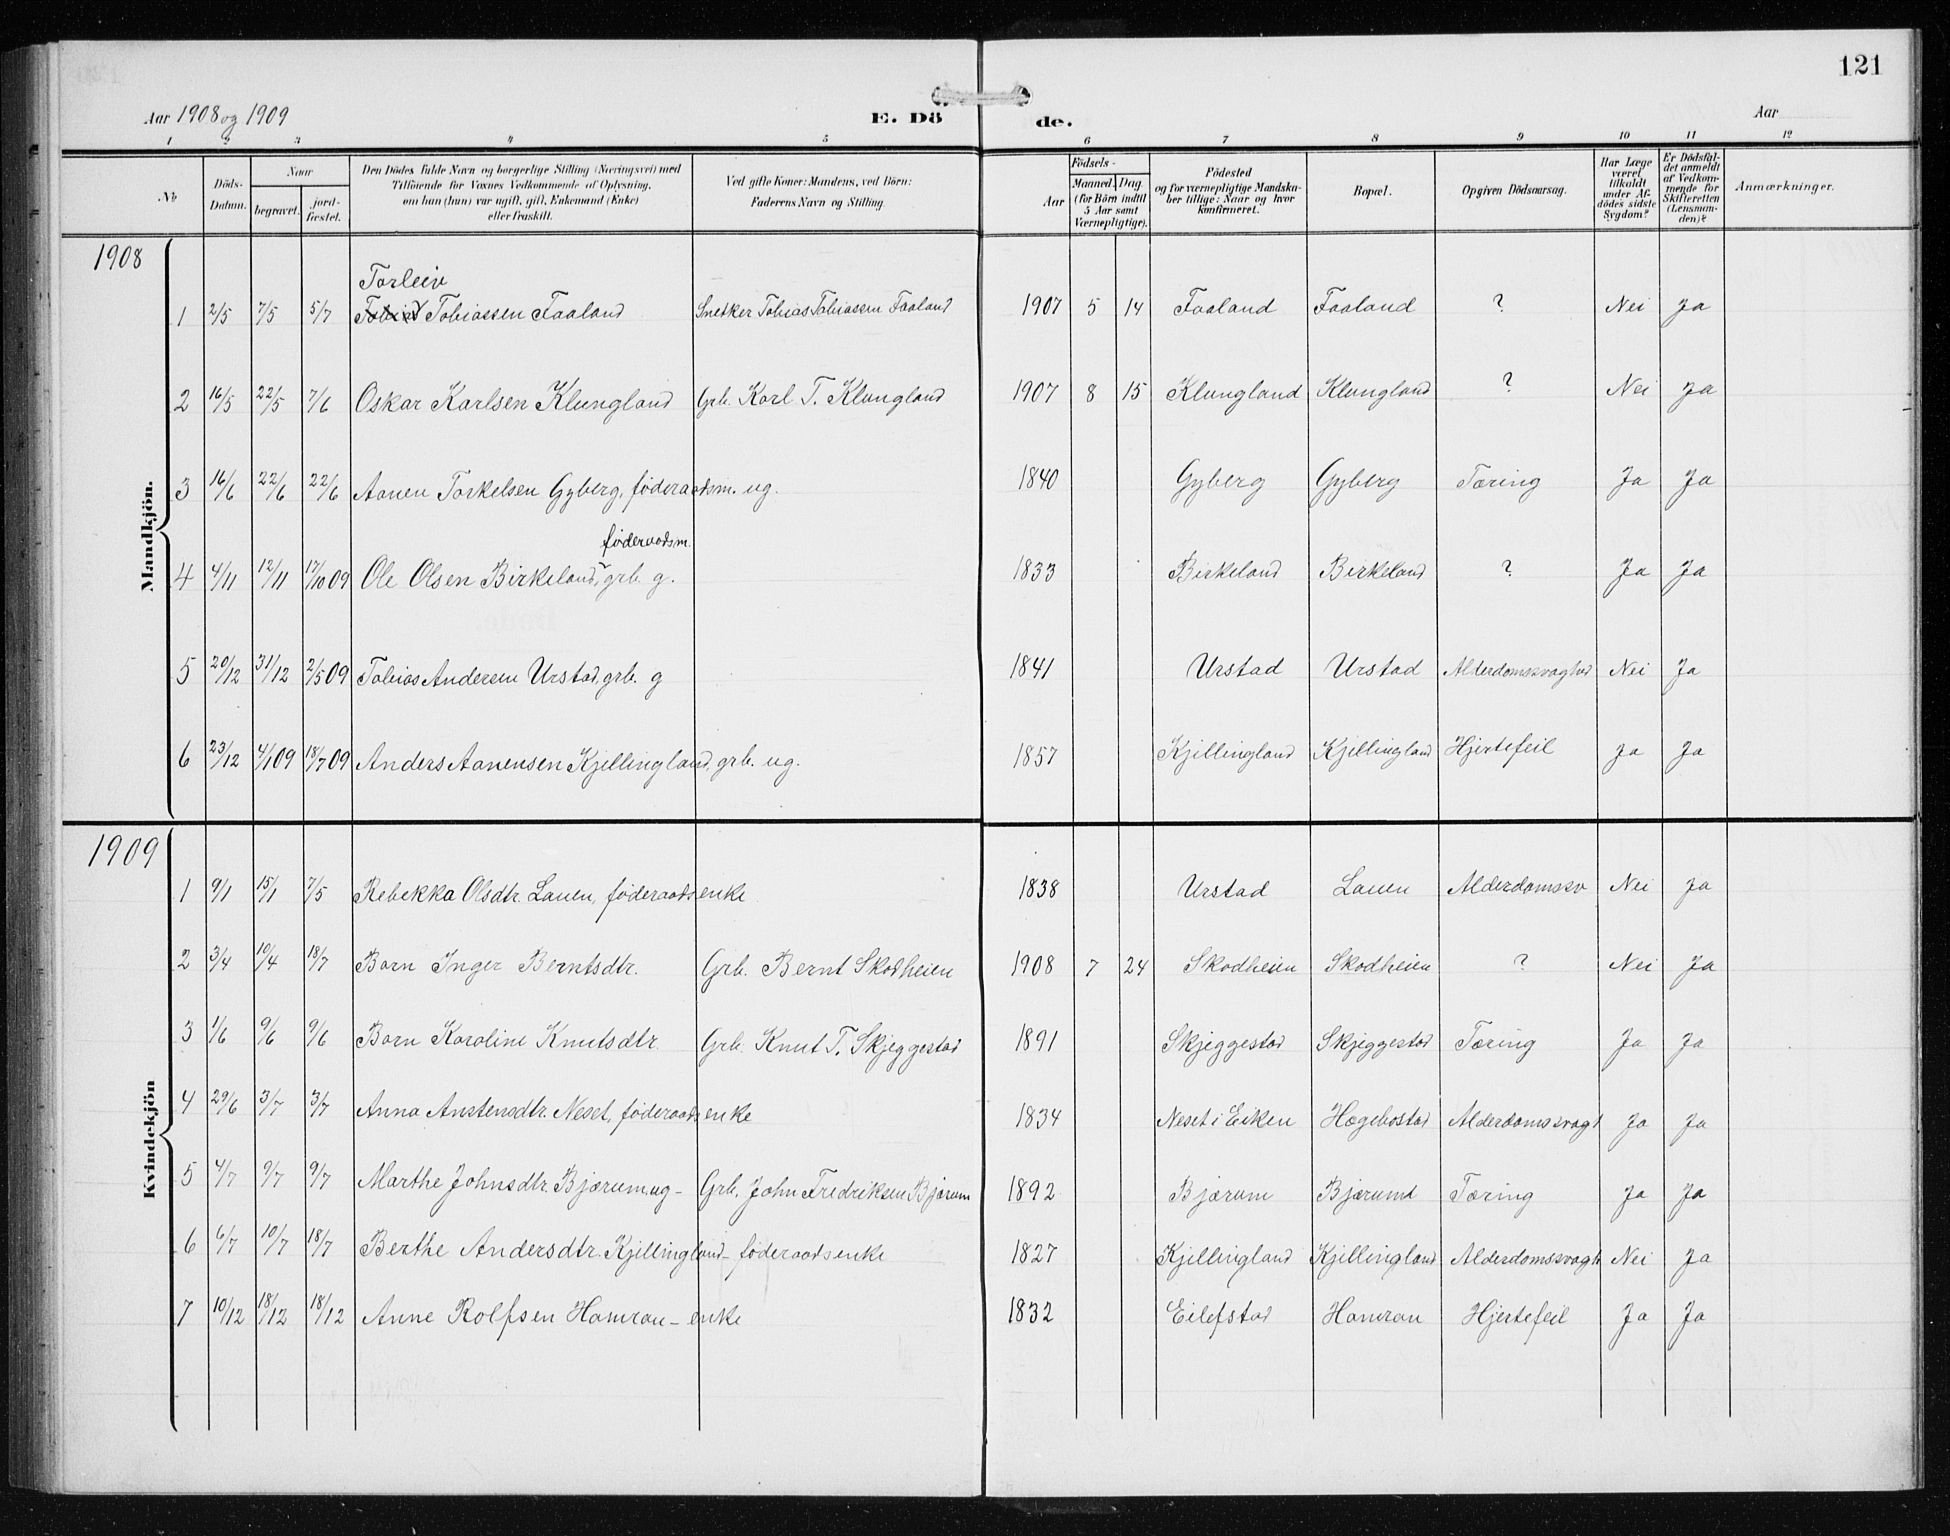 121
Aar 1908 og 1909 E. Dö de. Aar
1 2 3 4 5 6 7 8 9 10 11 12
No
Döds-Datum.
Naar
begravet.
jord-fæstet.
Den Dödes fulde Navn og borgerlige Stilling (Næringsvei) med
Tilföiende for Voxnes Vedkommende af Oplysning,
om han (hun) var ugift, gift, Enkemand (Enke)
eller fraskilt.
Ved gifte Koner: Mandens, ved Börn:
Faderens Navn og Stilling.
Födsels-
Aar
Maaned. Dag.
(for Börn indtil
5 Aar samt
Værnepligtige).
Födested
og for værnepligtige Mandska-
ber tillige: Naar og hvor
konfirmeret.
Bopæl.
Opgiven Dödsaarsag.
Har Læge
været
tilkaldt
under Af-
dödes sidste
Sygdom?
Er Dödsfal-
det anmeldt
af Vedkom-
mende for
Skifteretten
(Lensman-
den)?
Anmærkninger.
1908
Mandkjön.
Torleiv
1 2/5 7/5 5/7 Tobias Tobiassen Faaland Snetker Tobias Tobiassen Faaland 1907 5 14 Faaland Faaland ? Nei Ja
2 16/5 22/5 7/6 Oskar Karlsen Klungland Grb. Karl T. Klungland 1907 8 15 Klungland Klungland ? Nei Ja
3 16/6 22/6 22/6 Aanen Torkelsen Gyberg, föderaadsm. ug. 1840 Gyberg Gyberg Tæring Ja Ja
föderaadsm.
4 4/11 12/11 17/10 09 Ole Olsen Birkeland, grb. g. 1833 Birkeland Birkeland ? Ja Ja
5 20/12 31/12 2/5 09 Tobias Andersen Urstad, grb. g 1841 Urstad Urstad Alderdomssvaghed Nei Ja
6 23/12 4/1 09 18/7 09 Anders Aanensen Kjellingland, grb. ug. 1857 Kjellingland Kjellingland Hjertefeil Ja Ja
1909
Kvindekjön
1 9/1 15/1 7/5 Rebekka Olsdtr. Lauen, föderaadsenke 1838 Urstad Lauen Alderdomssv Nei Ja
2 3/4 10/4 18/7 Barn Inger Berntsdtr. Grb. Bernt Skodheien 1908 7 24 Skodheien Skodheien ? Nei Ja
3 1/6 9/6 9/6 Barn Karoline Knutsdtr. Grb. Knut T. Skjeggestad 1891 Skjeggestad Skjeggestad Tæring Ja Ja
4 29/6 3/7 3/7 Anna Anstensdtr. Neset, föderaadsenke 1834 Neset i Eiken Hægebostad Alderdomssvagt Ja Ja
5 4/7 9/7 9/7 Marthe Johnsdtr. Bjærum, ug - Grb. John Fredriksen Bjærum 1892 Bjærum Bjærum Tæring Ja Ja
6 6/7 10/7 18/7 Berthe Andersdtr. Kjellingland - föderaadsenke 1827 Kjellingland Kjellingland Alderdomssvagh Nei Ja
7 10/12 18/12 18/12 Anne Rolfsen Hamran - enke 1832 Eilefstad Hamran Hjertefeil Ja Ja